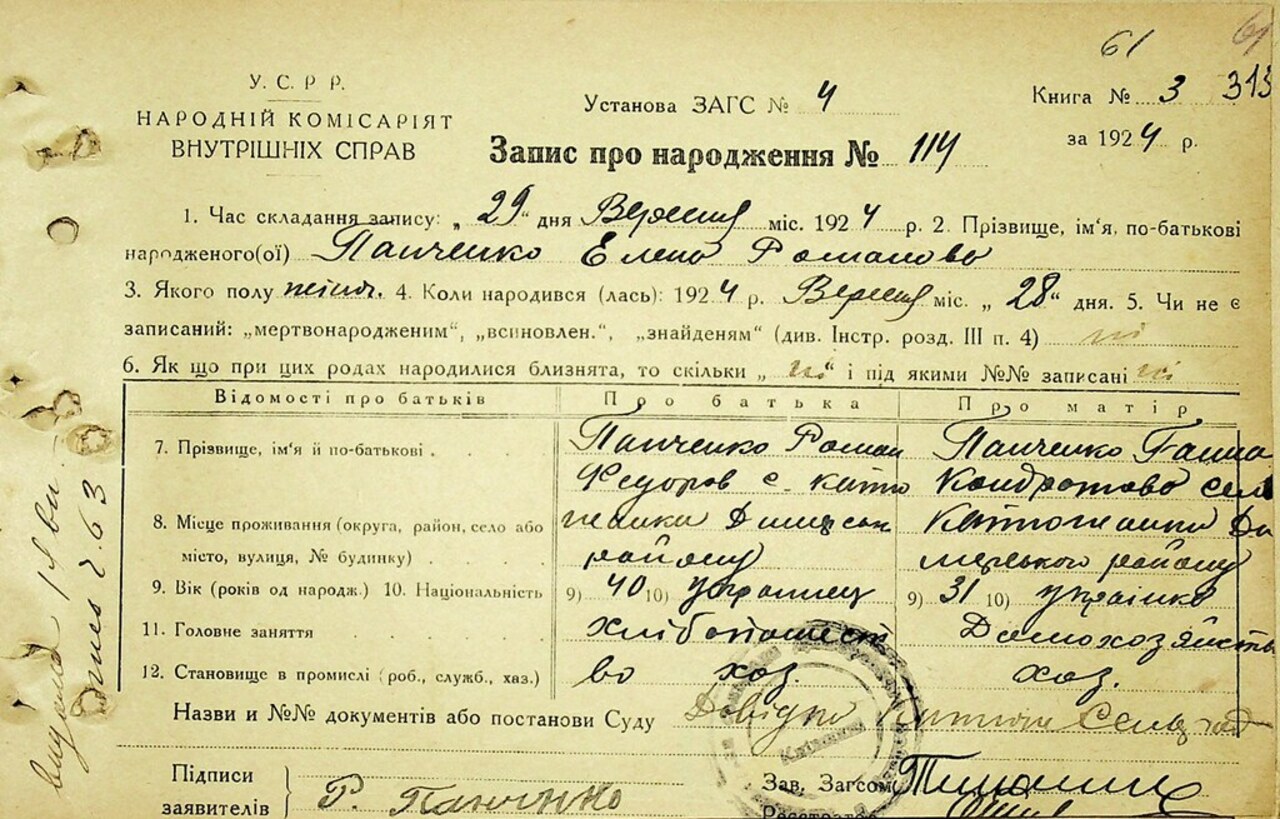 61 61
У. С. Р Р.
НАРОДНІЙ КОМІСАРІЯТ
ВНУТРІШНІХ СПРАВ
Установа ЗАГС № 4
Книга № 3 313
за 1924 р.
Запис про народження № 114
1. Час складання запису: „29“ дня Вересня міс. 1924 р. 2. Прізвище, ім'я, по-батькові
народженого(ої) Панченко Елена Романова
3. Якого полу жіноч. 4. Коли народився (лась): 1924 р. Вересня міс. „28“ дня. 5. Чи не є
записаний: „мертвонародженим“, „всиновлен.“, „знайденям“ (див. Інстр. розд. III п. 4) ні
6. Як що при цих родах народилися близнята, то скільки „ні“ і під якими №№ записані ні
Відомості про батьків Про батька Про матір
7. Прізвище, ім'я й по-батькові Панченко Роман Панченко Ганна
Федоров с. Катю Кондратова сел
8. Місце проживання (округа, район, село або жанки Димерськ Катюжанки Ди
місто, вулиця, № будинку) району мерського району
9. Вік (років од народж.) 10. Національність 9) 40 10) украинец 9) 31 10) українка
11. Головне заняття хлібопашест Домохозяйств
12. Становище в промислі (роб., служб., хаз.) во хаз. хаз.
Назви и №№ документів або постанови Суду Довідка Катюж Сельради
Підписи
заявителів Р. Панченко
Зав. Загсом
Реєстратор